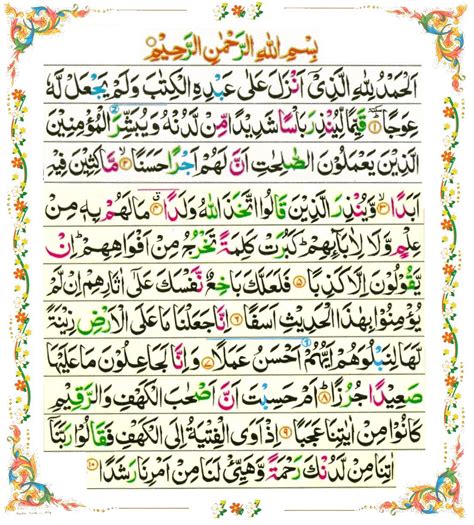 بِسْمِ اللهِ الرَّحْمٰنِ الرَّحِيْمِ
اَلْحَمْدُ لِلّٰهِ الَّذِىْٓ اَنْزَلَ عَلٰى عَبْدِهِ الْكِتٰبَ وَلَمْ يَجْعَلْ لَّهٗ
عِوَجًا ۜ ۱ قَيِّمًا لِّيُنْذِرَ بَاْسًا شَدِيْدًا مِّنْ لَّدُنْهُ وَيُبَشِّرَ الْمُؤْمِنِيْنَ
الَّذِيْنَ يَعْمَلُوْنَ الصّٰلِحٰتِ اَنَّ لَهُمْ اَجْرًا حَسَنًا ۙ ۲ مَّاكِثِيْنَ فِيْهِ
اَبَدًا ۙ ۳ وَّيُنْذِرَ الَّذِيْنَ قَالُوا اتَّخَذَ اللهُ وَلَدًا ۴ مَا لَهُمْ بِهٖ مِنْ
عِلْمٍ وَّلَا لِاٰبَآئِهِمْ ؕ كَبُرَتْ كَلِمَةً تَخْرُجُ مِنْ اَفْوَاهِهِمْ ؕ اِنْ
يَّقُوْلُوْنَ اِلَّا كَذِبًا ۵ فَلَعَلَّكَ بَاخِعٌ نَّفْسَكَ عَلٰٓى اٰثَارِهِمْ اِنْ لَّمْ
يُؤْمِنُوْا بِهٰذَا الْحَدِيْثِ اَسَفًا ۶ اِنَّا جَعَلْنَا مَا عَلَى الْاَرْضِ زِيْنَةً
لَّهَا لِنَبْلُوَهُمْ اَيُّهُمْ اَحْسَنُ عَمَلًا ۷ وَاِنَّا لَجَاعِلُوْنَ مَا عَلَيْهَا
صَعِيْدًا جُرُزًا ؕ ۸ اَمْ حَسِبْتَ اَنَّ اَصْحٰبَ الْكَهْفِ وَالرَّقِيْمِ
كَانُوْا مِنْ اٰيٰتِنَا عَجَبًا ۹ اِذْ اَوَى الْفِتْيَةُ اِلَى الْكَهْفِ فَقَالُوْا رَبَّنَآ
اٰتِنَا مِنْ لَّدُنْكَ رَحْمَةً وَّهَيِّئْ لَنَا مِنْ اَمْرِنَا رَشَدًا ۱۰